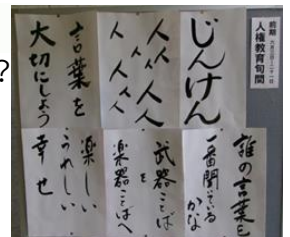 前期
人権教育旬間
じんけん
人人人
人人人
人人人
言葉を
大切にしよう
誰の言葉を
一番聞いている
かな
武器ことば
を
楽器ことばへ
楽しい
うれしい
幸せ
?